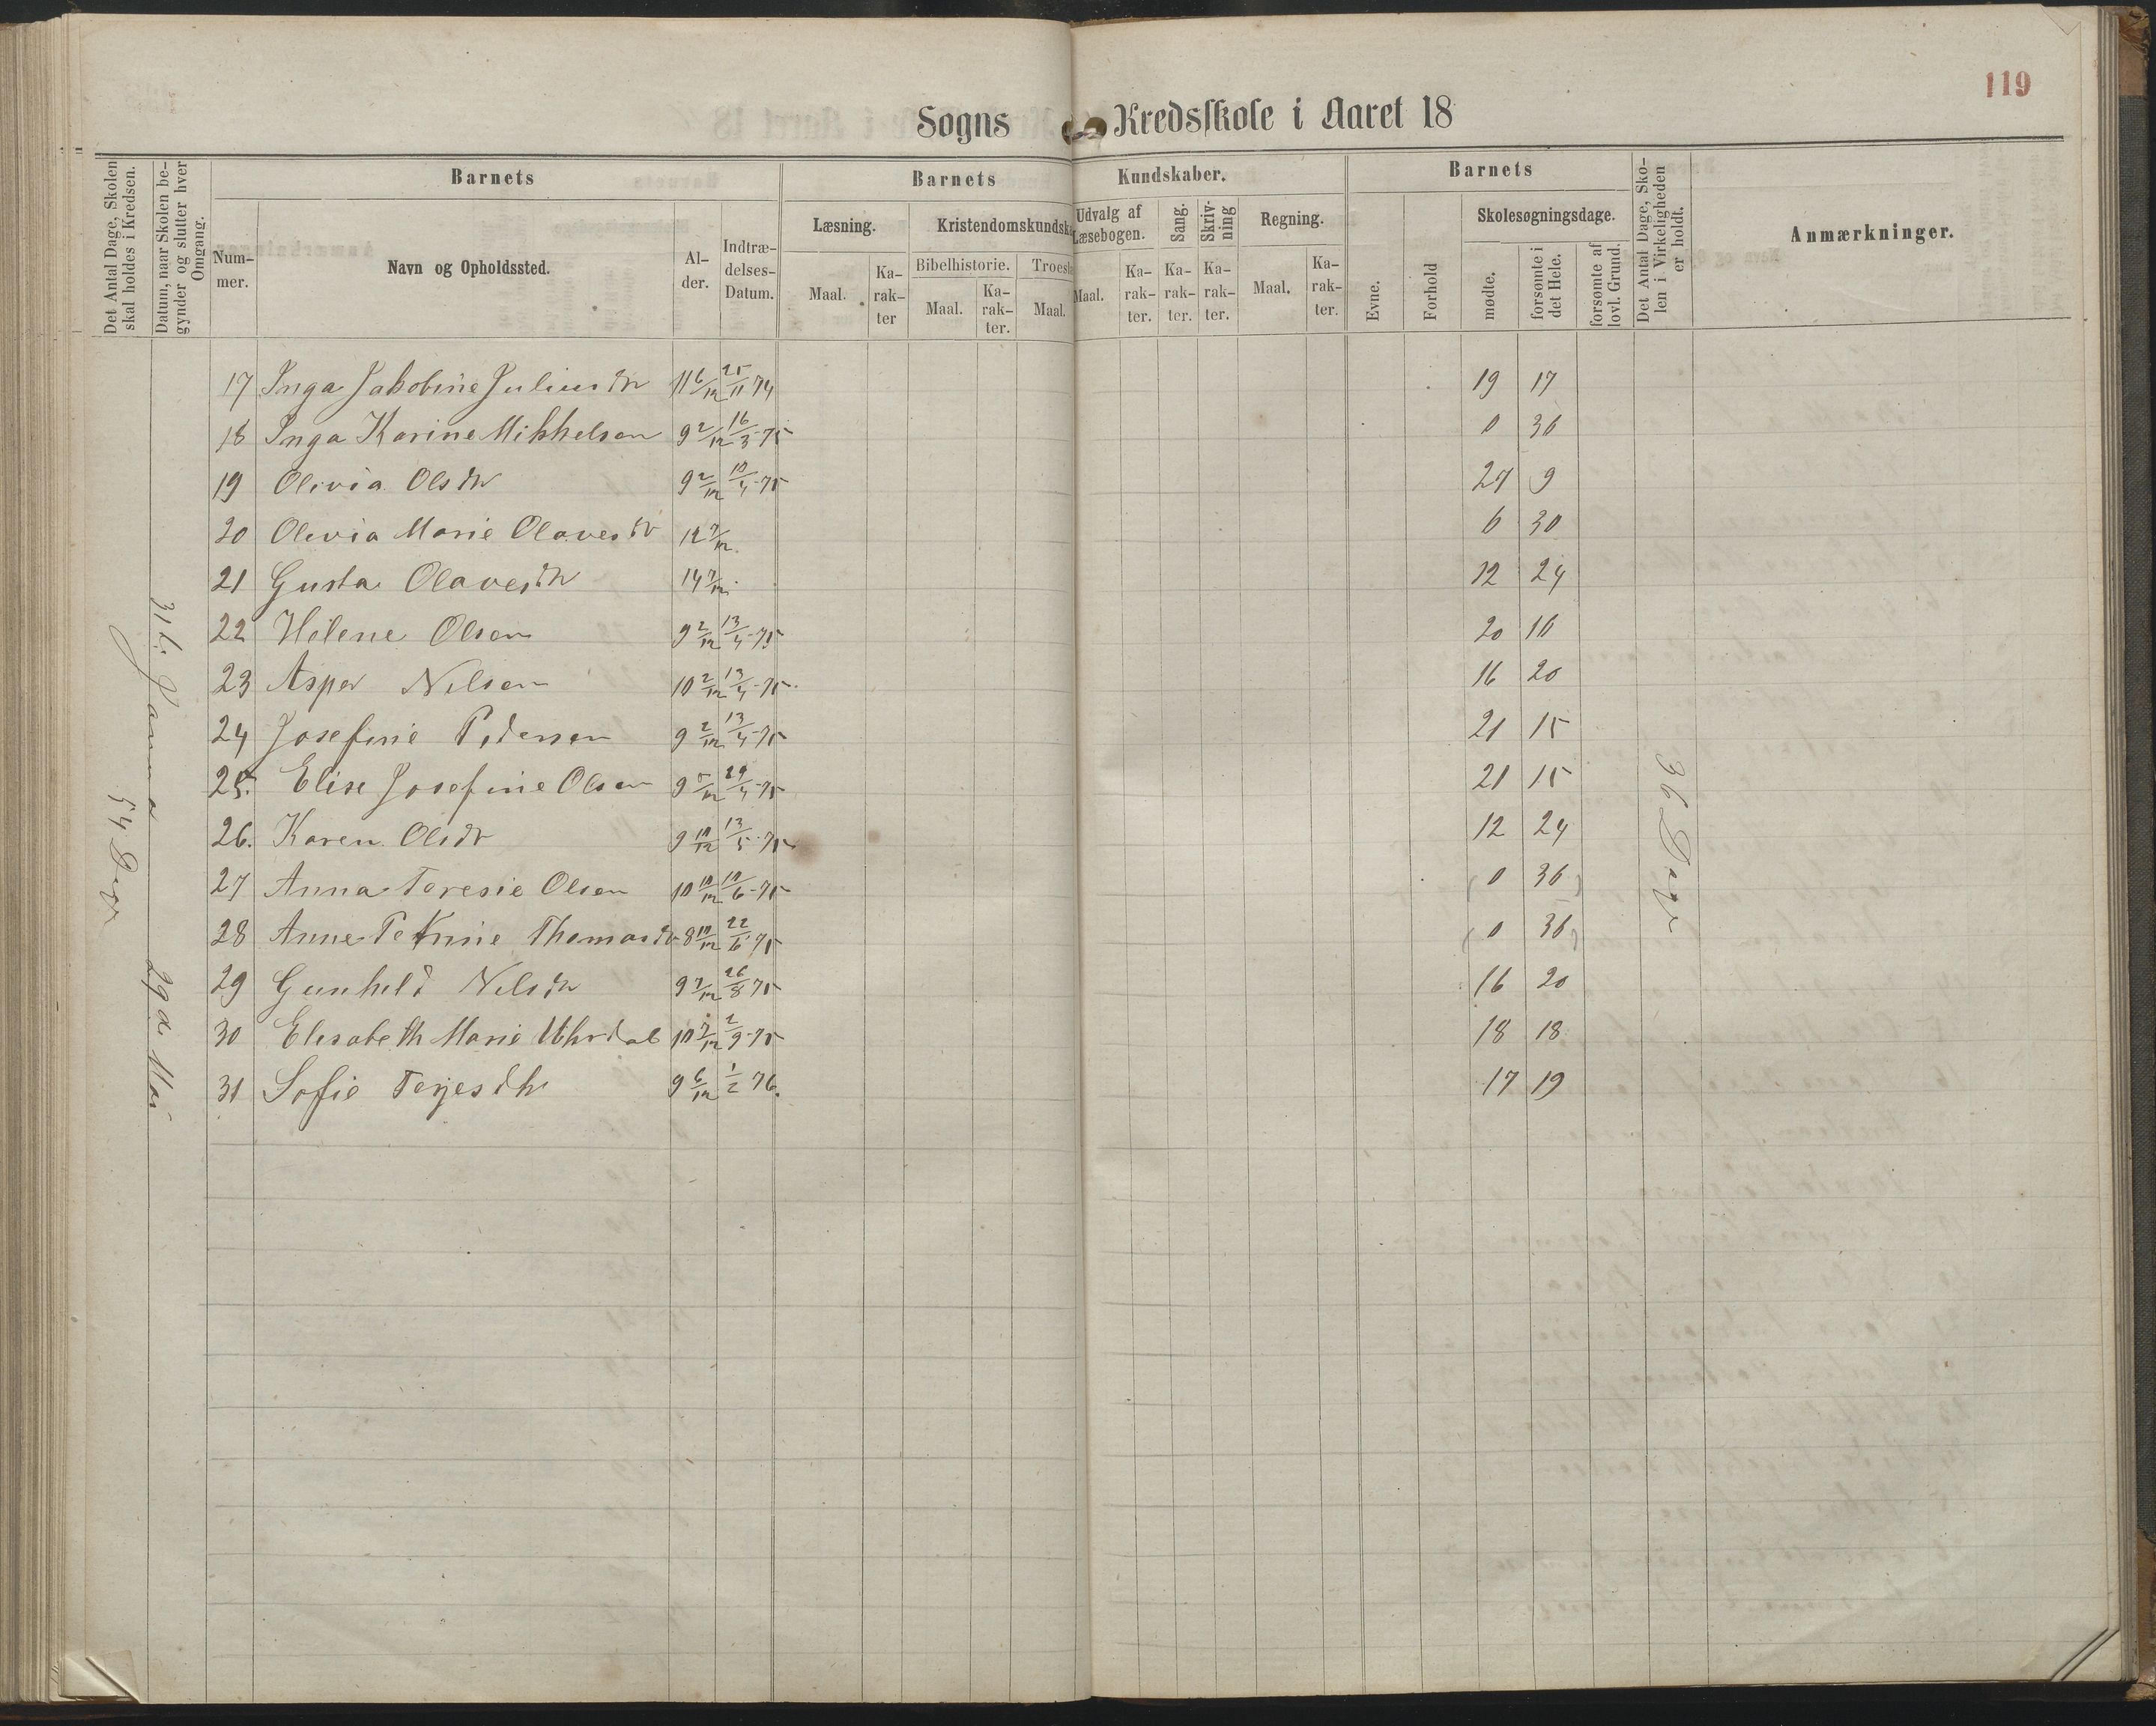 119
Sogns Kredsskole i Aaret 18
Det Antal Dage, Skolen skal holdes i Kredsen.
Datum, naar Skolen begynder og slutter hver Omgang.
Barnets
Nummer.
Navn og Opholdssted.
Alder.
Indtrædelses-Datum.
Barnets Kundskaber.
Læsning.
Maal.
Karakter
Kristendomskundsk
Bibelhistorie.
Maal.
Karakter.
Troesl
Maal.
Udvalg af Læsebogen.
Maal.
Karakter.
Sang.
Karakter.
Skrivning
Karakter.
Regning.
Maal.
Karakter.
Barnets
Evne.
Forhold
Skolesøgningsdage.
mødte.
forsømte i det Hele.
forsømte af lovl. Grund.
Det Antal Dage, Skolen i Virkeligheden er holdt.
Anmærkninger.
54 Dage
31te Januar 29de Mai
36 Dage
17 Inga Jakobine Juliusdtr 11 6/12 25/11 74 19 17
18 Inga Karine Mikkelsen 9 2/12 16/3-75 0 36
19 Olivia Olsdtr 9 2/12 10/4-75 27 9
20 Olivia Marie Olavesdtr 12 7/12. 6 30
21 Gusta Olavesdtr 14 7/12. 12 24
22 Helene Olsen 9 2/12 13/4-75 20 16
23 Asper Nilsen 10 2/12 13/4-75. 16 20
24 Josefine Pedersen 9 2/12 13/4-75 21 15
25. Elise Josefine Olsen 9 5/12 29/4-75 21 15
26. Karen Olsdtr 9 10/12 13/5-75 12 24
27 Anna Teresie Olsen 10 10/12 10/6-75 (0 36)
28 Anne Petrine Thomasdtr 8 10/12 22/6-75 (0 36)
29 Gunhild Nilsdtr 9 7/12 26/8 75 16 20
30 Elisabeth Marie 10 7/12 2/9-75 18 18
31 Sofie Terjesdtr 9 6/12 1/2 76. 17 19